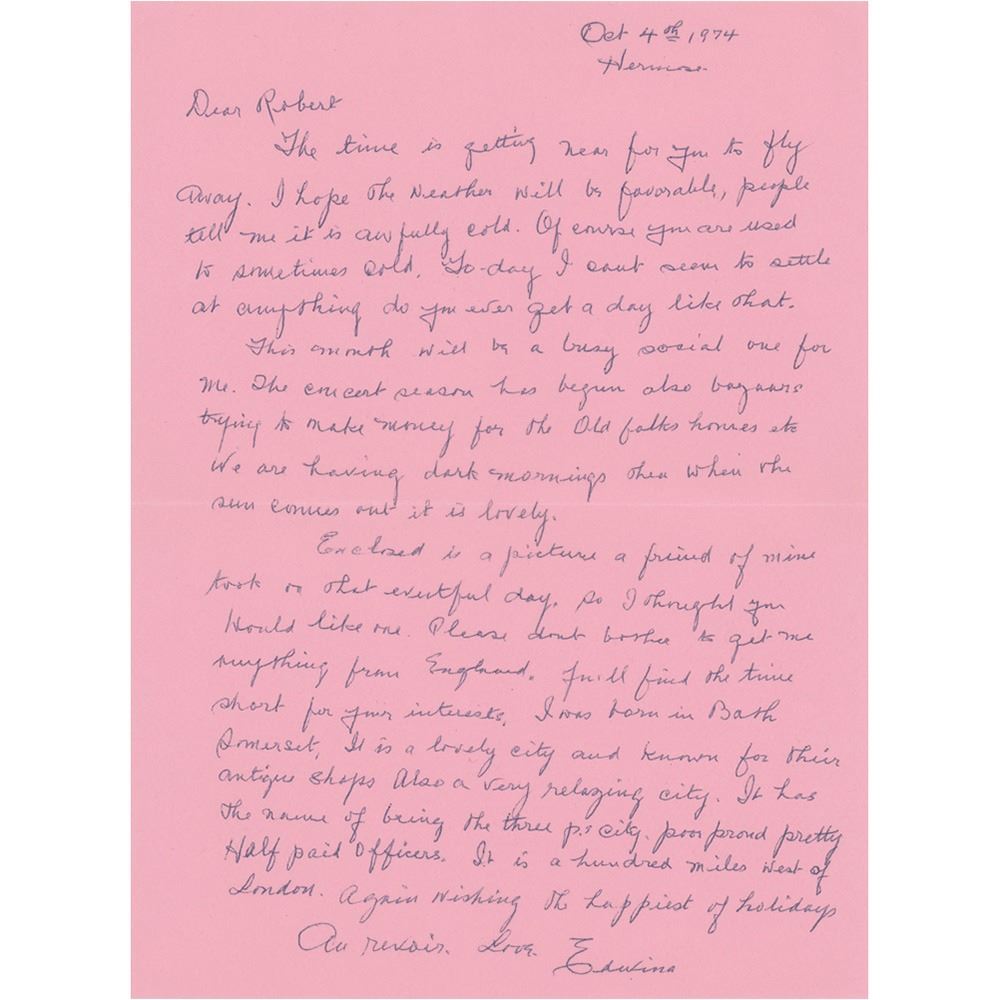 Oct 4th, 1974
Hermosa.
Dear Robert
The time is getting near for you to fly
away. I hope the weather will be favorable, people
tell me it is awfully cold. Of course you are used
to sometimes cold. To-day I cant seem to settle
at anything do you ever get a day like that.
This month will be a busy social one for
me. The concert season has begun also bazaars
trying to make money for the Old folks homes etc
We are having dark mornings then when the
sun comes out it is lovely.
Enclosed is a picture a friend of mine
took on that eventful day, so I thought you
would like one. Please dont bother to get me
anything from England. You'll find the time
short for your interests. I was born in Bath
Somerset, It is a lovely city and known for their
antique shops Also a very relaxing city. It has
the name of being the three p.s city. poor proud pretty
Half paid Officers. It is a hundred miles West of
London. Again wishing the happiest of holidays
Au revoir. Love Edwina